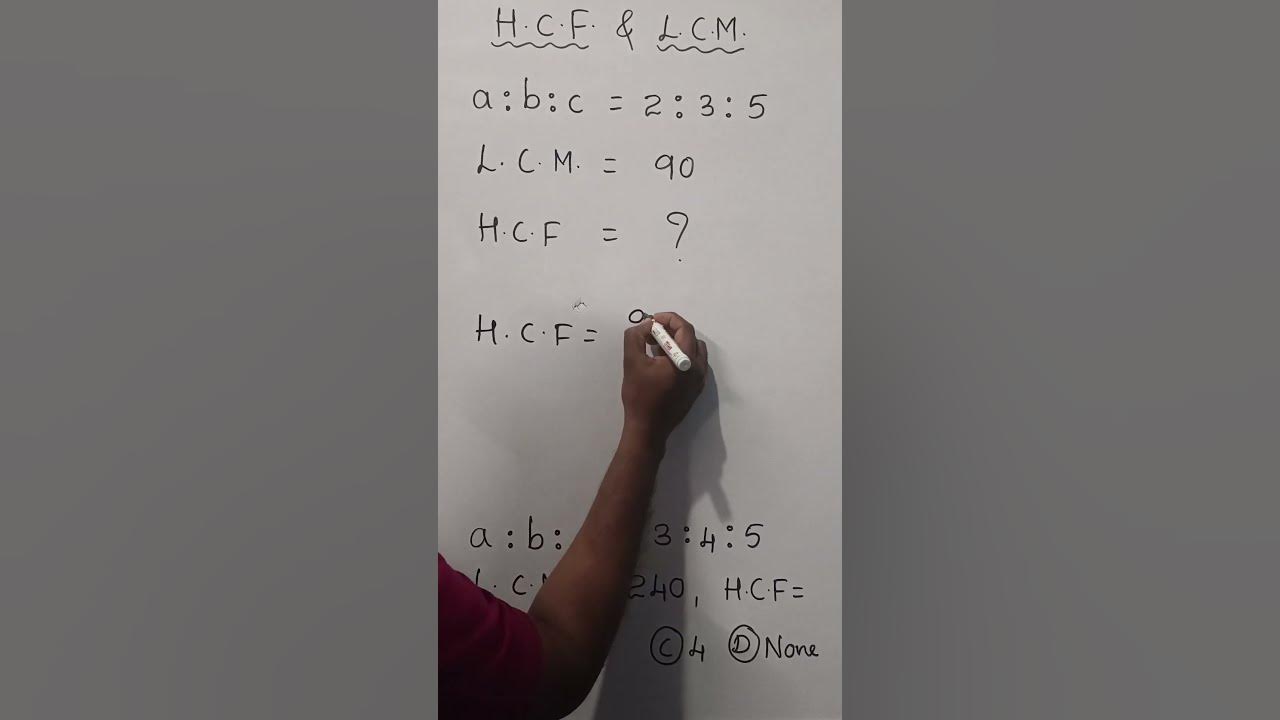 H.C.F. & L.C.M.
a:b:c = 2:3:5
L.C.M. = 90
H.C.F = ?
H.C.F =
a:b: 3:4:5
240, H.C.F=
Ⓒ 4 Ⓓ None